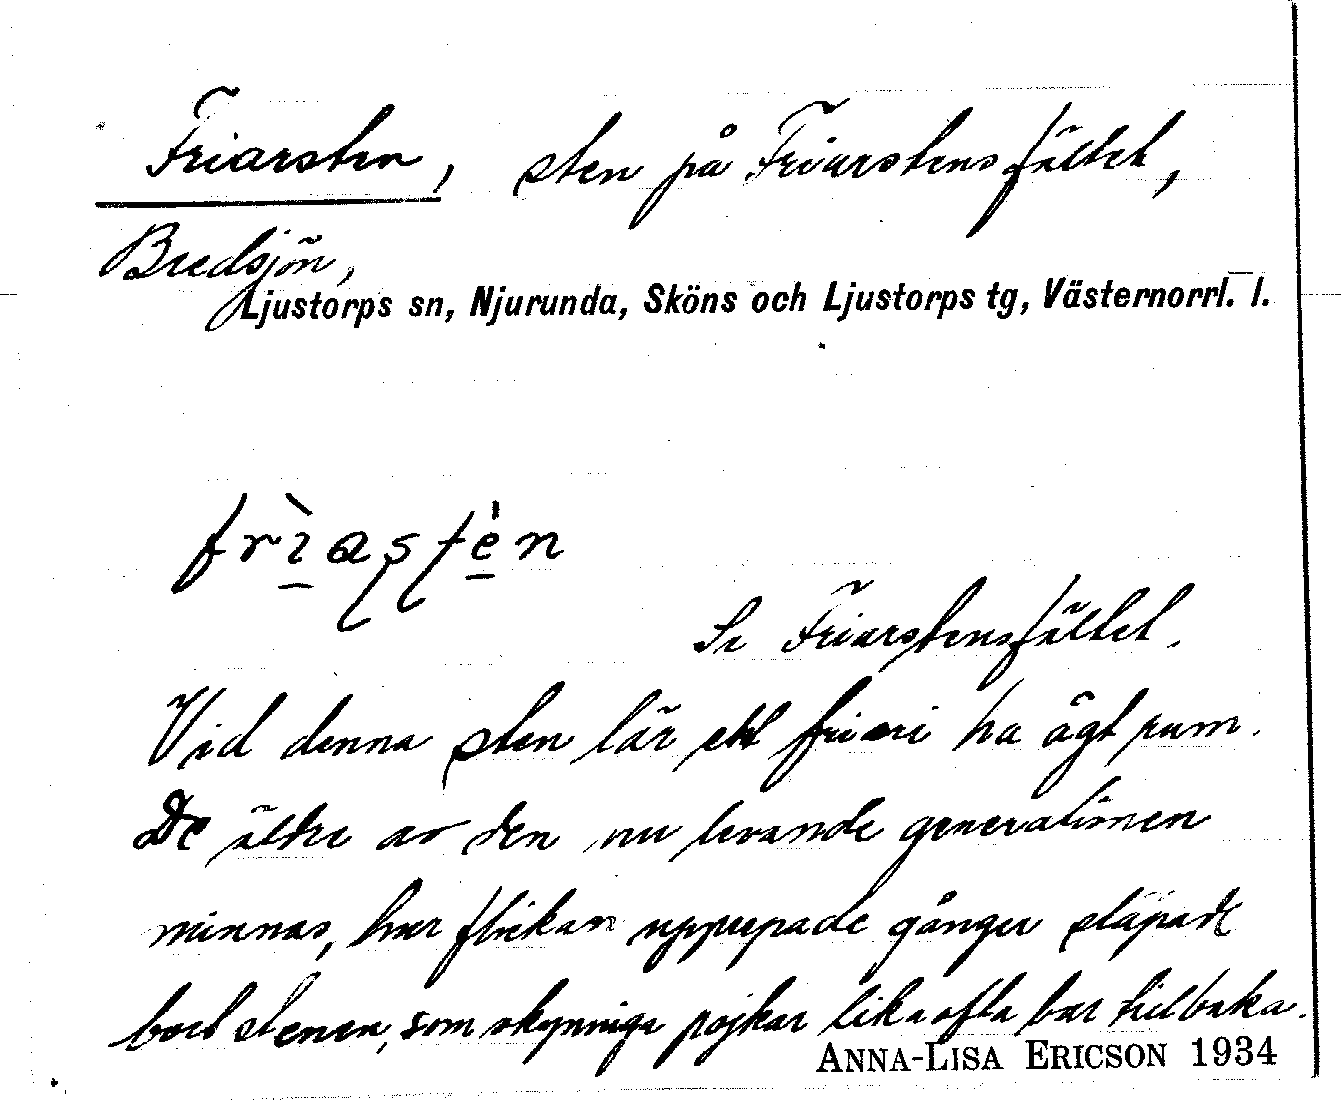 Friarsten, sten på Friarstensfältet,
Bredsjön,
Ljustorps sn, Njurunda, Sköns och Ljustorps tg, Västernorrl. l.
Se Friarstensfältet.
Vid denna sten lär ett frieri ha ägt rum.
De äldre av den nu levande generationen
minnas, hur flickan upprepade gånger släpade
bort stenen, som okynniga pojkar lika ofta bar tillbaka.
ANNA-LISA ERICSON 1934